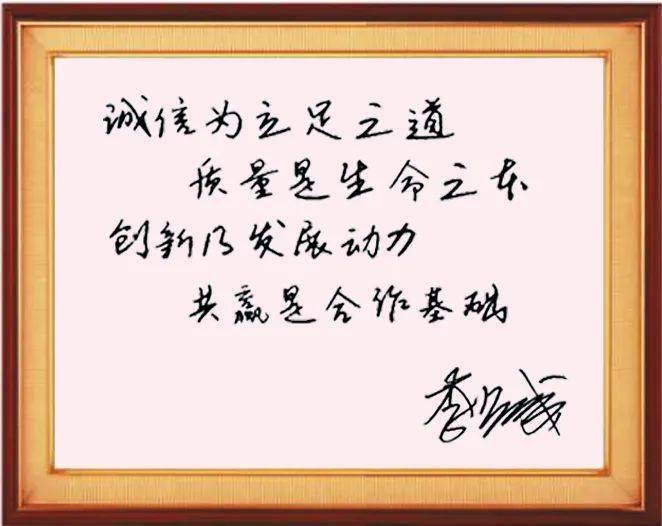 诚信为立足之道
质量是生命之本
创新乃发展动力
共赢是合作基础